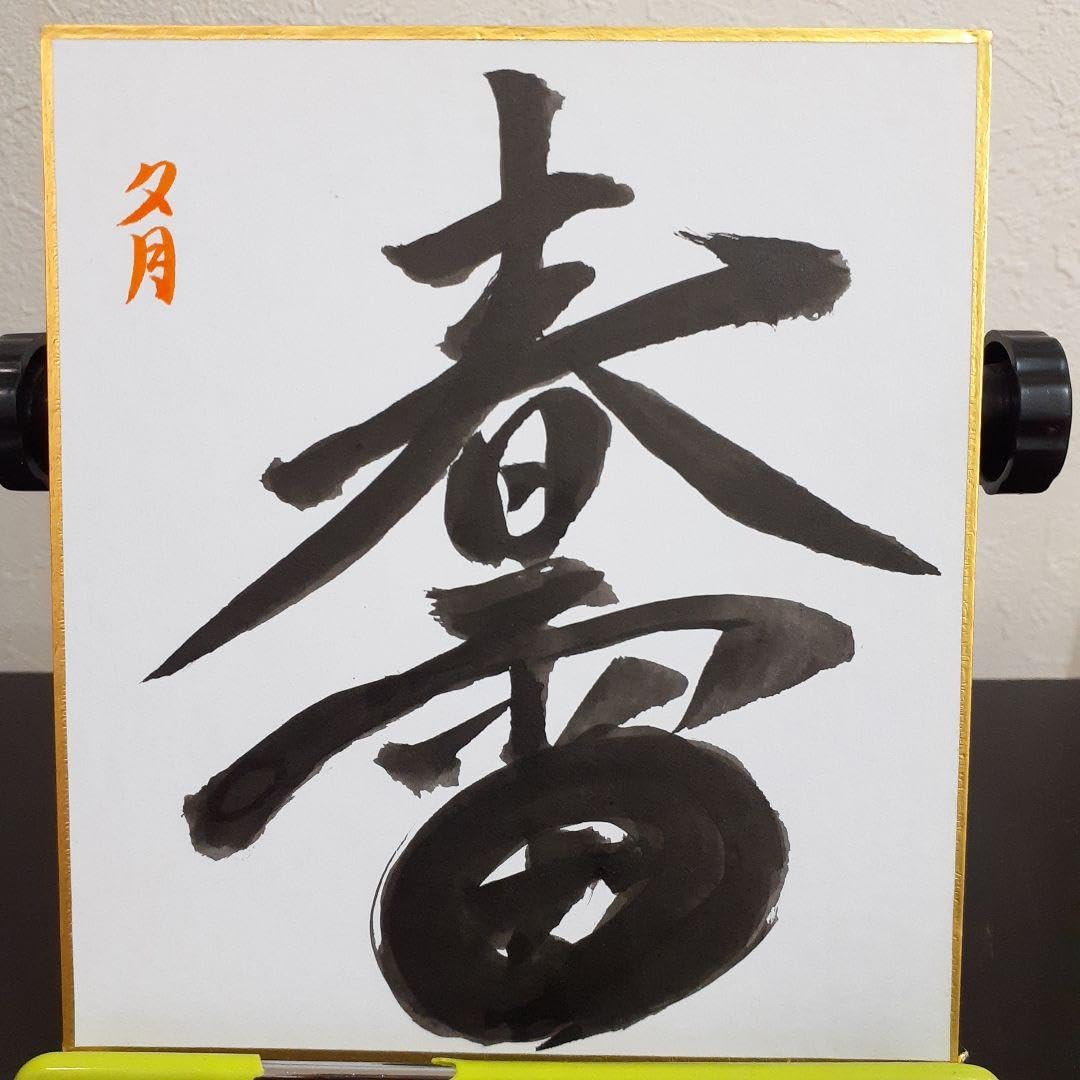 春雷
夕月